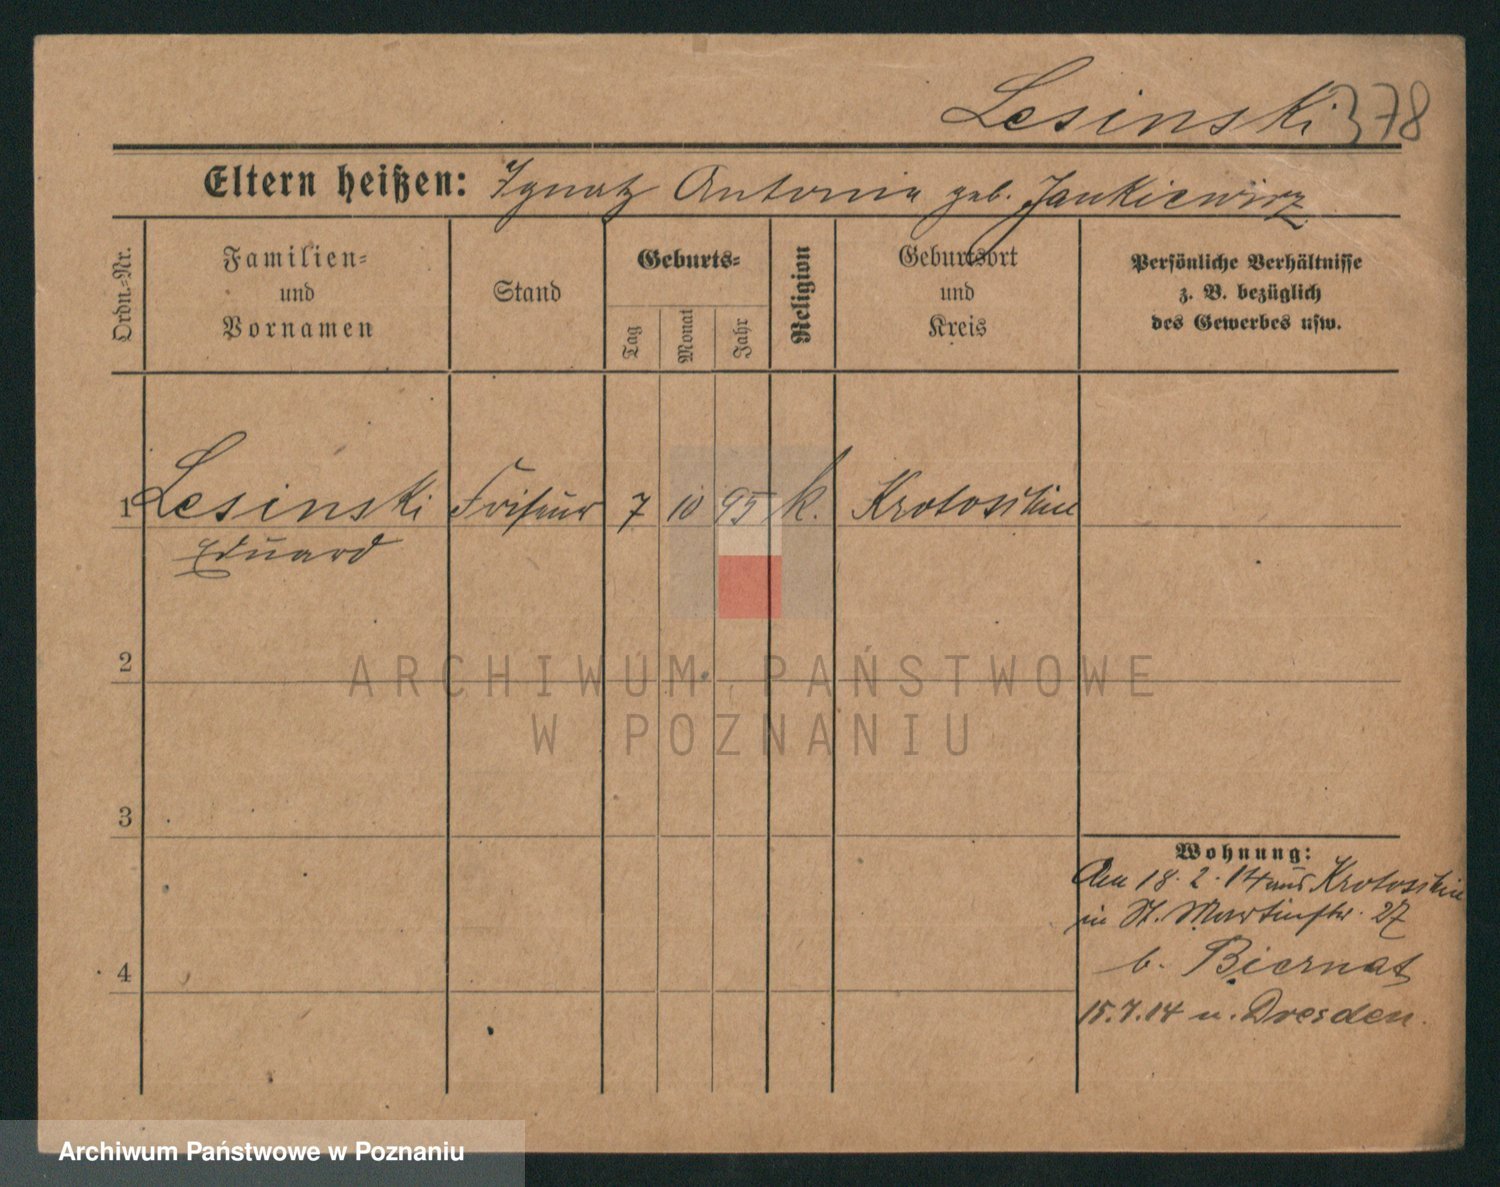 Lesinski 378
Eltern heißen: Ignatz Antonie geb. Jankiewicz
Ordn.-Nr.
Familien-
und
Vornamen
Stand
Geburts-
Tag
Monat
Jahr
Religion
Geburtsort
und
Kreis
Persönliche Verhältnisse
z. B. bezüglich
des Gewerbes usw.
1 Lesinski Friseur 7 10 95 k. Krotoschin
Eduard
2
3
4
ARCHIWUM PAŃSTWOWE
W POZNANIU
Wohnung:
Am 18.2.14 aus Krotoschin
in St. Martinstr. 27
b. Biernat
15.7.14 n. Dresden.
Archiwum Państwowe w Poznaniu